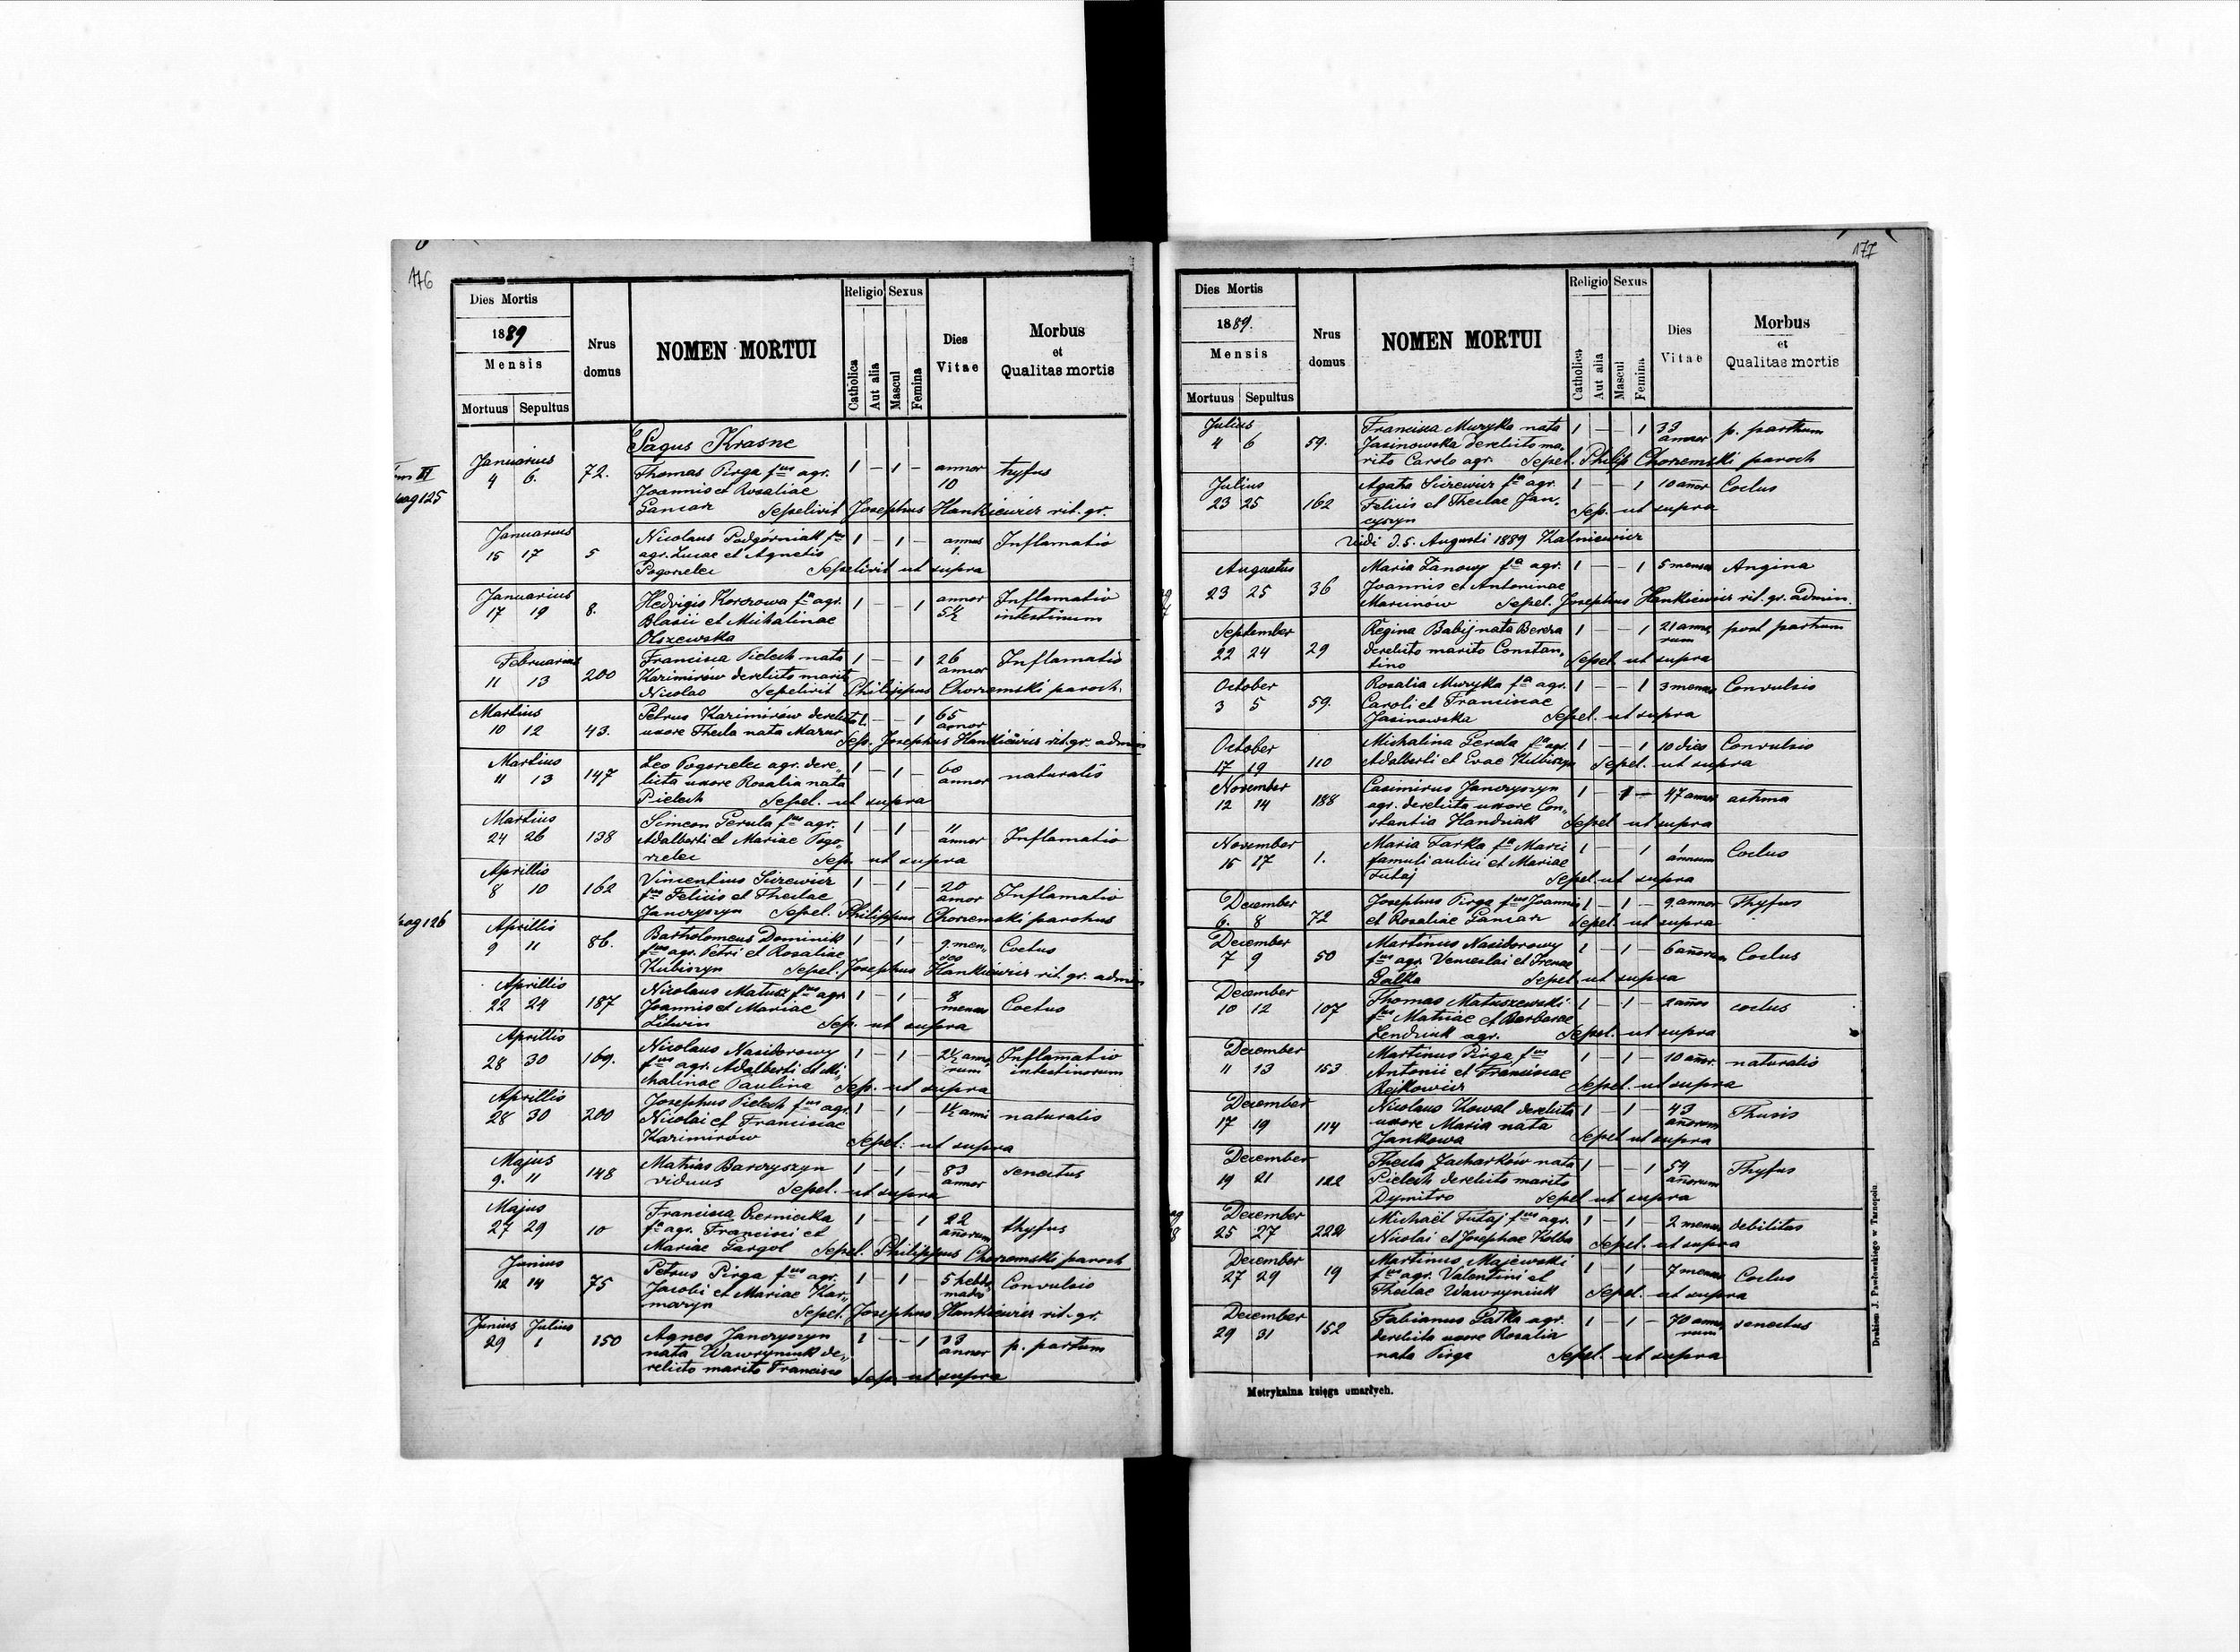 176
Dies Mortis
1889
Mensis
Mortuus Sepultus
Nrus domus
NOMEN MORTUI
Religio Sexus
Catholica
Aut alia
Mascul
Femina
Dies Vitae
Morbus et Qualitas mortis
Pagus Krasne
pag 125
Januarius
4 6. 72. Thomas Pirga fus agr. 1 – 1 – annor 10 tyfus
Joannis et Rosaliae
Ganiar Sepelivit Josephus Hankiewicz rit. gr.
Januarius
15 17 5 Nicolaus Podgórniak fus 1 – 1 – annus 1. Inflamatio
agr. Lucae et Agnetis
Pogorzelec Sepelivit ut supra
Januarius
17 19 8. Hedvigis Korczowa fa agr. 1 – – 1 annor 5½ Inflamatio intestinum
Blasii et Michalinae
Olszewska
Februarius
11 13 200 Francisca Pielech nata 1 – – 1 26 annor Inflamatio
Kazimirow derelicto marito
Nicolao Sepelivit Philippus Chorzemski paroch.
Martius
10 12 43. Petrus Kazimirów derelicta 1. – – 1 65 annor
uxore Thecla nata Mazur
Sep. Josephus Hankiewicz rit. gr. admin
Martius
11 13 147 Leo Pogorzelec agr. dere„ 1 – 1 – 60 annor naturalis
licta uxore Rosalia nata
Pielech Sepel. ut supra
Martius
24 26 138 Simeon Gerula fus agr. 1 – 1 11 annor Inflamatio
Adalberti et Mariae Pogo„
rzelec Sep. ut supra
Aprillis
8 10 162 Vincentius Sicrewicz 1 – 1 – 20 annor Inflamatio
fus Felicis et Theclae
Janczyszyn Sepel. Philippus Chorzemski parohus
pag 126
Aprillis
9 11 86. Bartholomeus Dominik 1 – 1 9. men„ ses Coctus
fus agr. Petri et Rosaliae
Kubiszyn Sepel. Josephus Hankiewicz rit. gr. admin
Aprillis
22 24 187 Nicolaus Matusz fus agr 1 – 1 – 8 menses Coctus
Joannis et Mariae
Litwin Sep. ut supra
Aprillis
28 30 169. Nicolaus Nasiborowy 1 – 1 – 2½ anno rum Inflamatio intestinorum
fus agr. Adalberti et Mi„
chalinae Paulina Sep. ut supra
Aprillis
28 30 200 Josephus Pielech fus agr. 1 – 1 – 1½ anni naturalis
Nicolai et Franciscae
Kazimirów Sepel. ut supra
Majus
9. 11 148 Mathias Barczyszyn 1 – 1 – 83 annor senectus
viduus Sepel. ut supra
Majus
27 29 10 Francisca 1 – – 1 22 añorum thyfus
fa agr. Francisci et
Mariae Gargol Sepel. Philippus Chorzemski paroch
Junius
12 14 75 Petrus Pirga fus agr. 1 – 1 – 5 hebdo„ mades Convulsio
Jacobi et Mariae Kar„
maryn Sepel. Josephus Hankiewicz rit. gr.
Junius Julius
29 1 150 Agnes Janczyszyn 1 – – 1 33 annor p. partum
nata Wawryniuk de„
relicto marito Francisco
Sep. ut supra
177
Dies Mortis
1889.
Mensis
Mortuus Sepultus
Nrus domus
NOMEN MORTUI
Religio Sexus
Catholica
Aut alia
Mascul
Femina
Dies Vitae
Morbus et Qualitas mortis
Julius
4 6 59. Francisca Muzyka nata 1 – – 1 33 annor p. parthum
Jasinowska derelicto ma„
rito Carolo agr. Sepel. Philip Chorzemski paroch
Julius
23 25 162 Agata Sicrewicz fa agr. 1 – – 1 10 añor Coctus
Felicis et Theclae Jan„
czyszyn Sep. ut supra
Vidi d. 5. Augusti 1889 Kalniewicz
Augustus
23 25 36 Maria Zanowy fa agr. 1 – – 1 5 menses Angina
Joannis et Antoninae
Marunow Sepel. Josephus Hankiewicz rit. gr. admin.
September
22 24 29 Regina Babij nata Bereza 1 – – 1 21 anno rum post partum
derelicto marito Constan„
tino Sepel. ut supra
October
3 5 59. Rosalia Muzyka fa agr. 1 – – 1 3 menses Convulsio
Caroli et Franciscae
Jasinowska Sepel. ut supra
October
17 19 110 Michalina Gerula fa agr. 1 – – 1 10 dies Convulsio
Adalberti et Evae Kubiszyn Sepel. ut supra
November
12 14 188 Casimirus Janczyszyn 1 – 1 – 47 annor astma
agr. derelicta uxore Con„
stantia Handziak Sepel ut supra
November
15 17 1. Maria Farka fa Marci 1 – 1 1 annum Coctus
famuli aulici et Mariae
Futaj Sepel. ut supra
December
6. 8 72 Josephus Pirga fus Joannis 1 – 1 – 9. annor Thyfus
et Rosaliae Ganiar Sepel. ut supra
December
7 9 50 Martinus Nasiborowy 1 – 1 – 6 añorum Coctus
fus agr. Venceslai et Irenae
Galka Sepel. ut supra
December
10 12 107 Thomas Matuszewski 1 – 1 – 2 años coctus
fus Mathiae et Barbarae
Lendziuk agr. Sepel. ut supra
December
11 13 153 Martinus Pirga fus 1 – 1 – 10 añor. naturalis
Antonii et Franciscae
Rejkowicz Sepel. ut supra
December
17 19 114 Nicolaus Kowal derelicta 1 – 1 – 43 añorum Thusis
uxore Maria nata
Jankowa Sepel ut supra
December
19 21 122 Thecla Zacharków nata 1 – – 1 54 añorum Thyfus
Pielech derelicto marito
Dymitro Sepel ut supra
December
25 27 222 Michaël Futaj fus agr. 1 – 1 – 2 menses debilitas
Nicolai et Josephae Kolba Sepel. ut supra
December
27 29 19 Martinus Majewski 1 – 1 – 7 menses Coctus
fus agr. Valentini et
Theclae Wawryniuk Sepel. ut supra
December
29 31 152 Fabianus Galka agr. 1 – 1 – 70 anno„ rum senectus
derelicta uxore Rosalia
nata Pirga Sepel. ut supra
Metrykalna księga umarłych.
Drukiem J. Pawłowskiego w Tarnopolu.